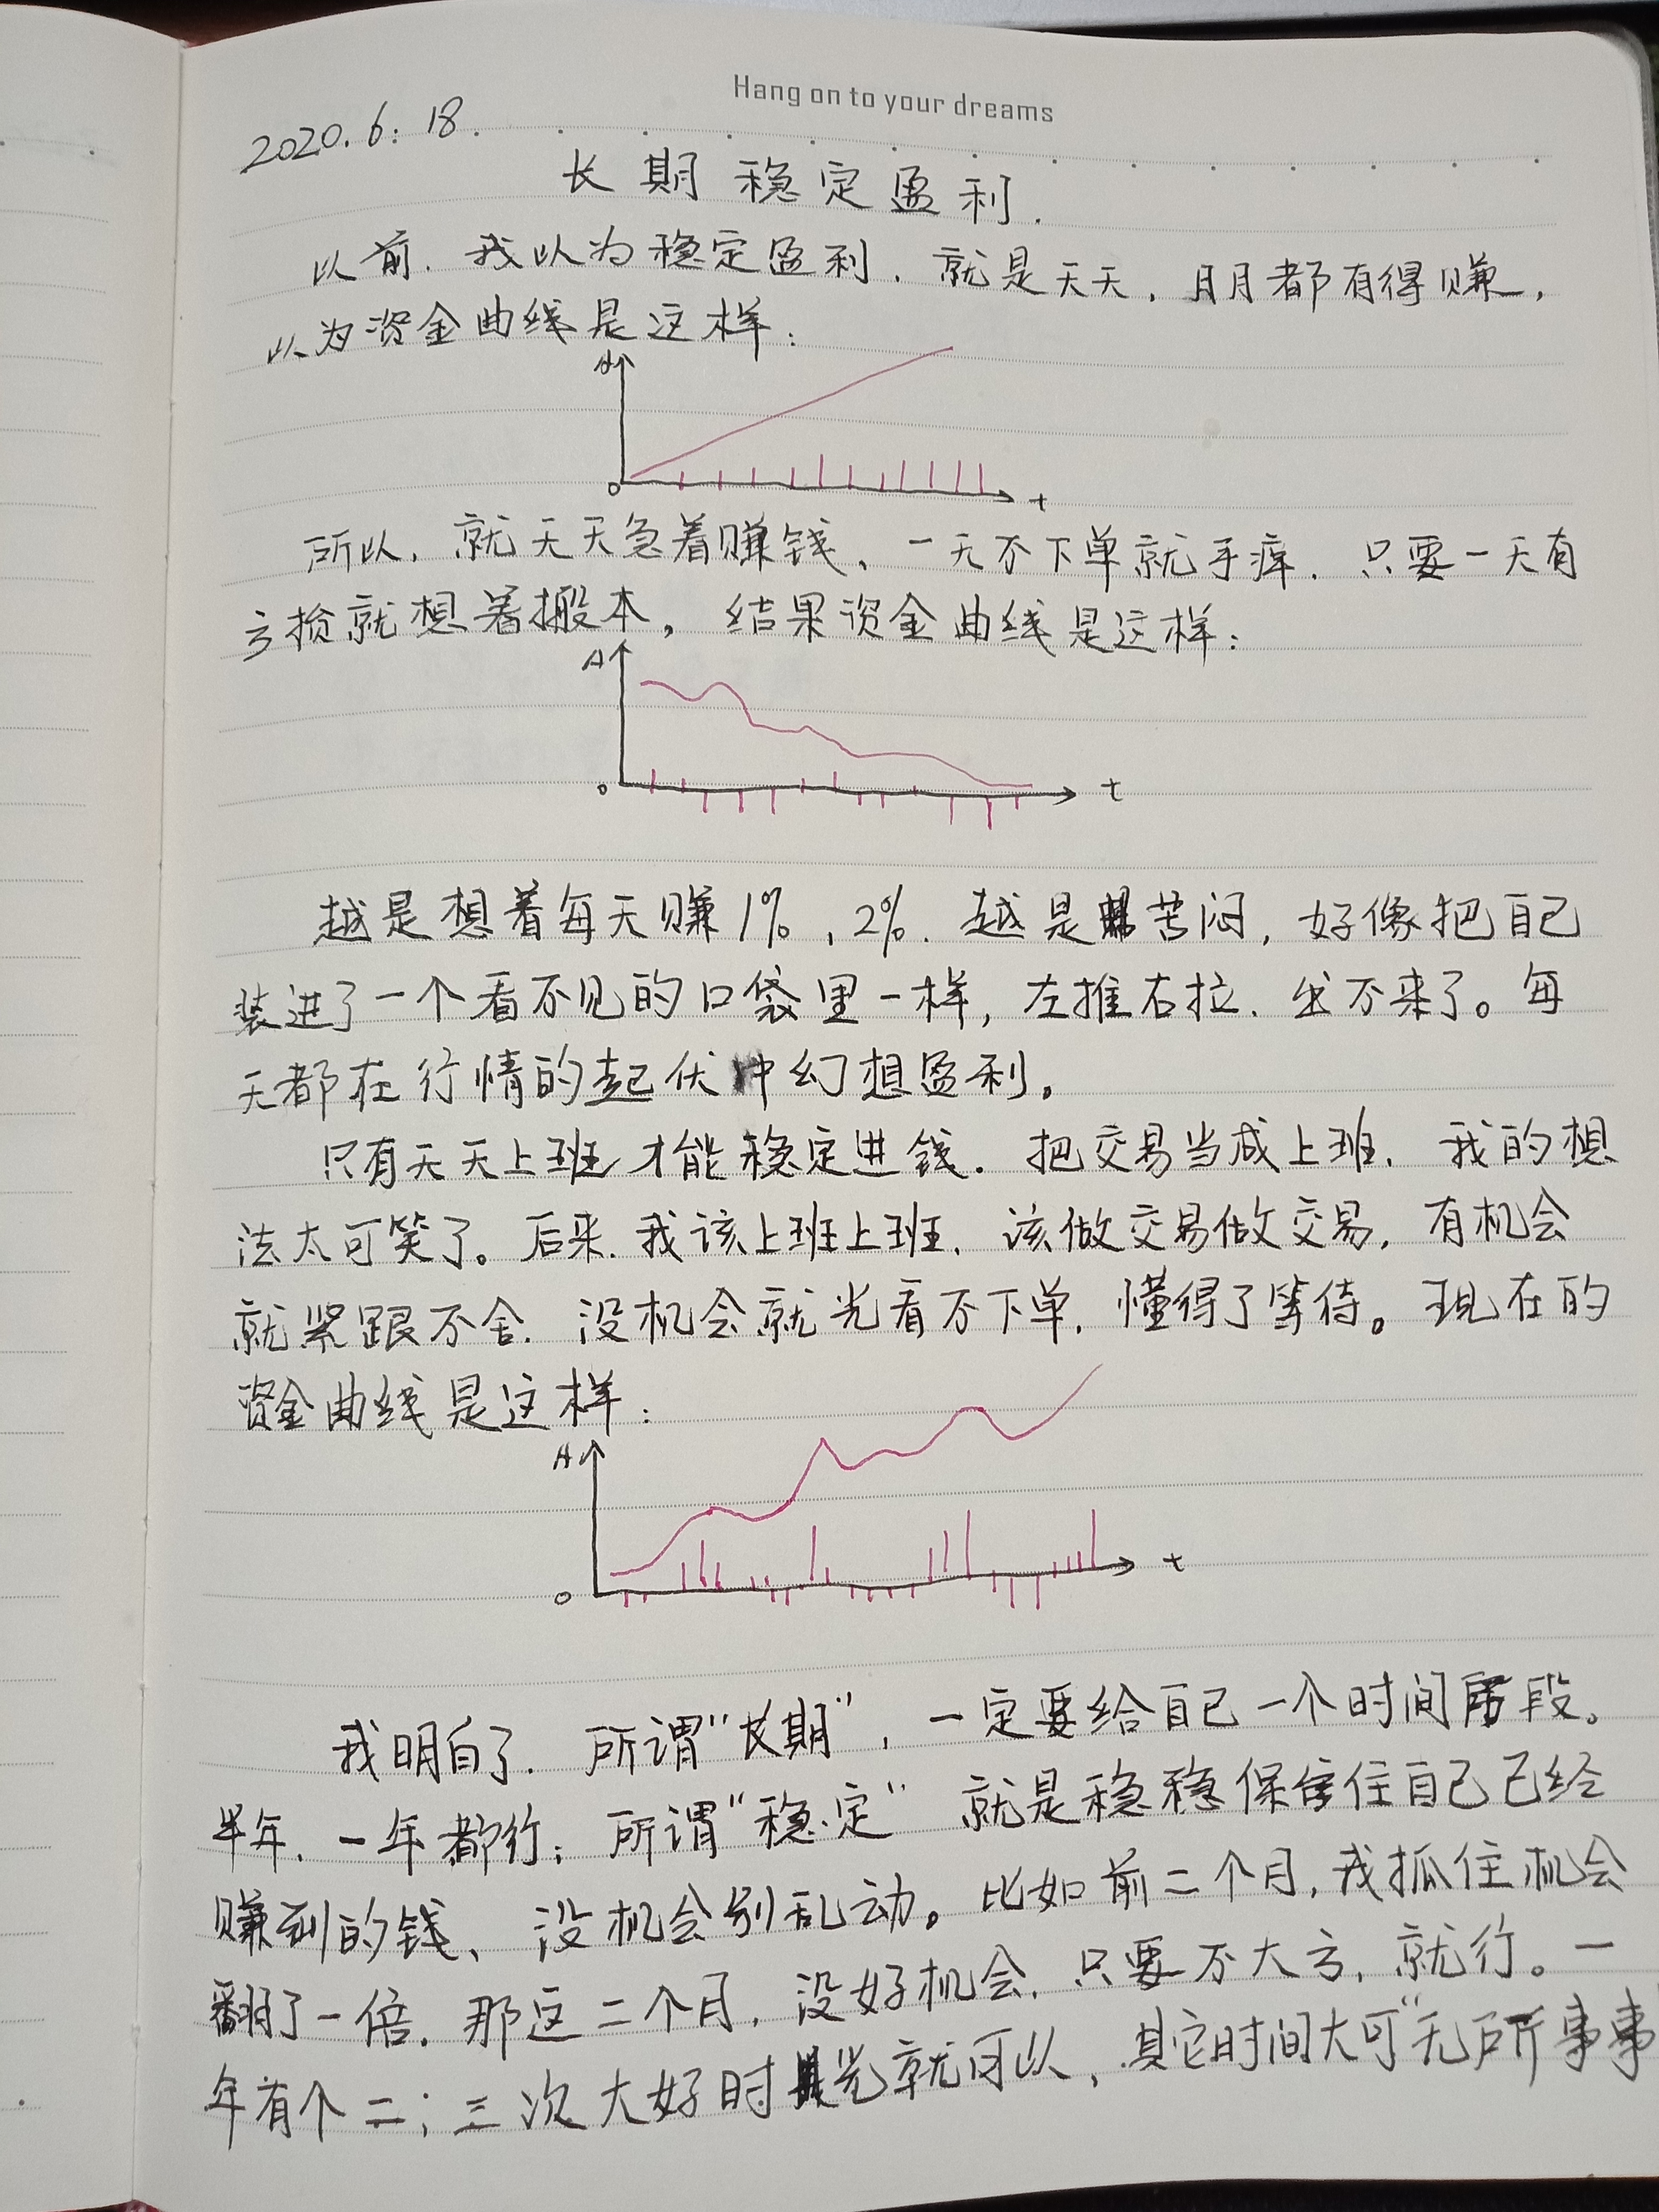 Hang on to your dreams
2020.6.18.
长期稳定盈利.
以前.我以为稳定盈利.就是天天,月月都有得赚,
以为资金曲线是这样:
A
0 t
所以.就天天急着赚钱、一天不下单就手痒.只要一天有
亏损就想着搬本,结果资金曲线是这样:
A
0 t
越是想着每天赚1%,2%.越是苦闷,好像把自己
装进了一个看不见的口袋里一样,左推右拉.出不来了。每
天都在行情的起伏中幻想盈利。
只有天天上班才能稳定进钱.把交易当成上班.我的想
法太可笑了。后来.我该上班上班.该做交易做交易,有机会
就紧跟不舍.没机会就光看不下单,懂得了等待。现在的
资金曲线是这样:
A
0 t
我明白了.所谓“长期”,一定要给自己一个时间段。
半年.一年都行;所谓“稳定”就是稳稳保住自己已经
赚到的钱、没机会别乱动。比如前二个月,我抓住机会
翻了一倍.那这二个月,没好机会.只要不大亏,就行。一
年有个二;三次大好时光就可以,其它时间大可“无所事事